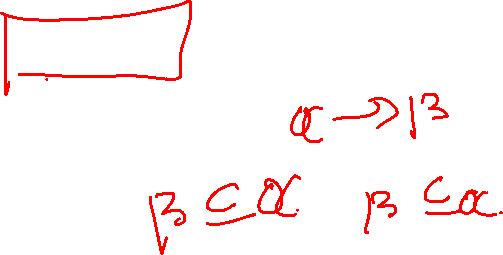 α → β
β ⊆ α β ⊆ α.